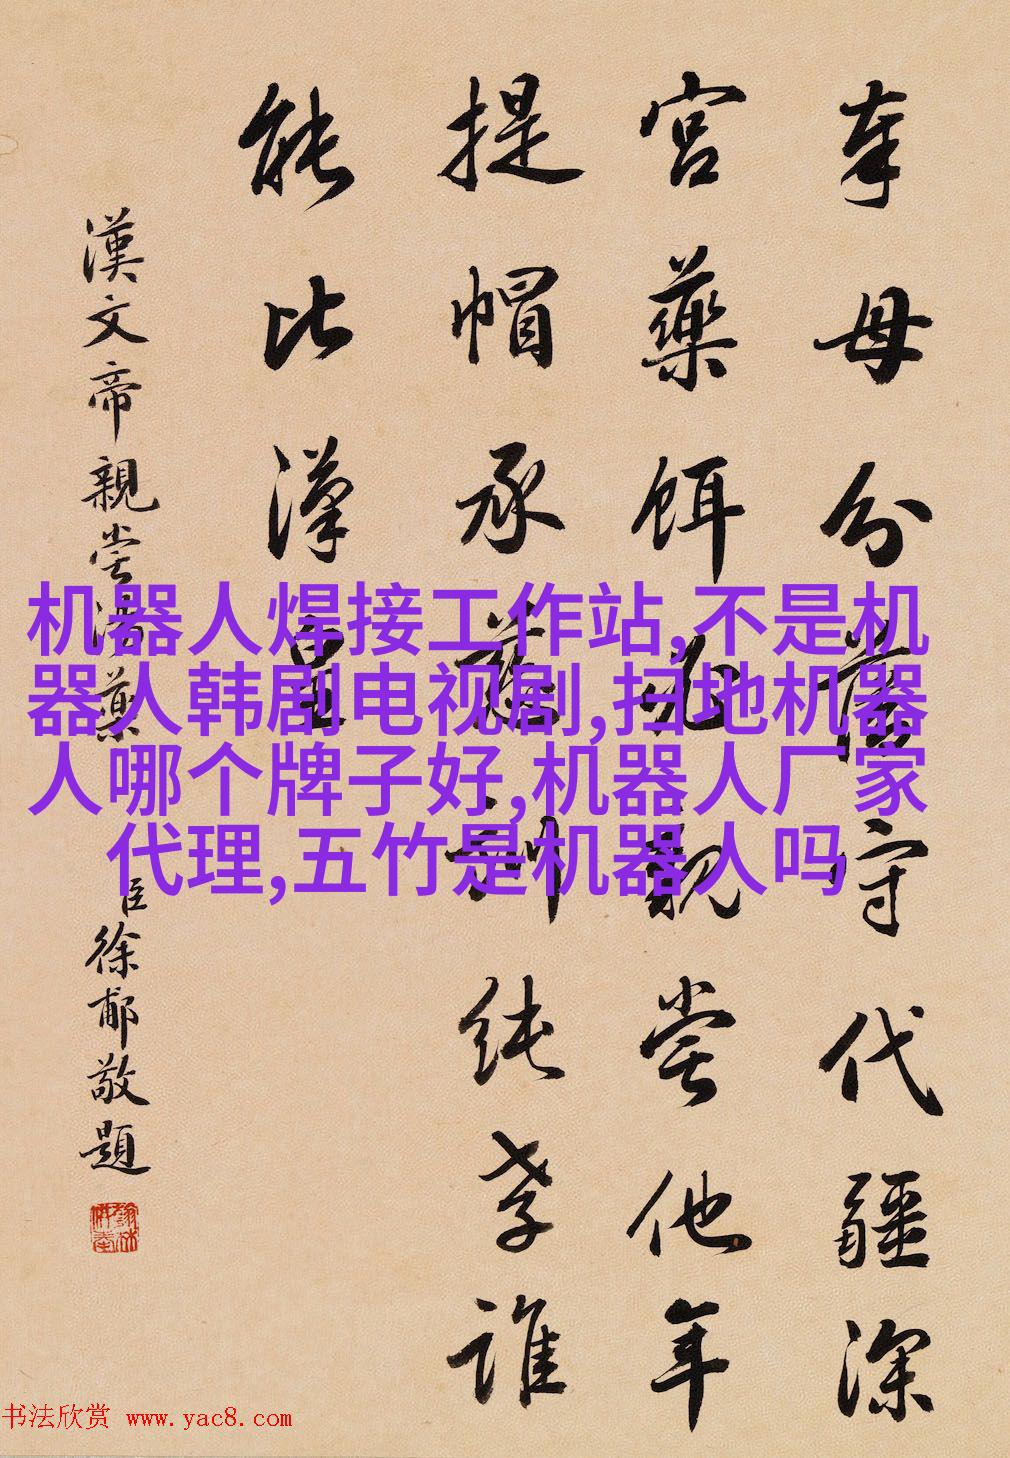 奉母分藩守代疆深
宮藥餌必親嘗他年
提帽承慈訓純孝誰
能比漢皇
漢文帝親嘗湯藥
臣徐郙敬題
机器人焊接工作站,不是机
器人韩剧电视剧,扫地机器
人哪个牌子好,机器人厂家
代理,五竹是机器人吗
书法欣赏 www.yac8.com